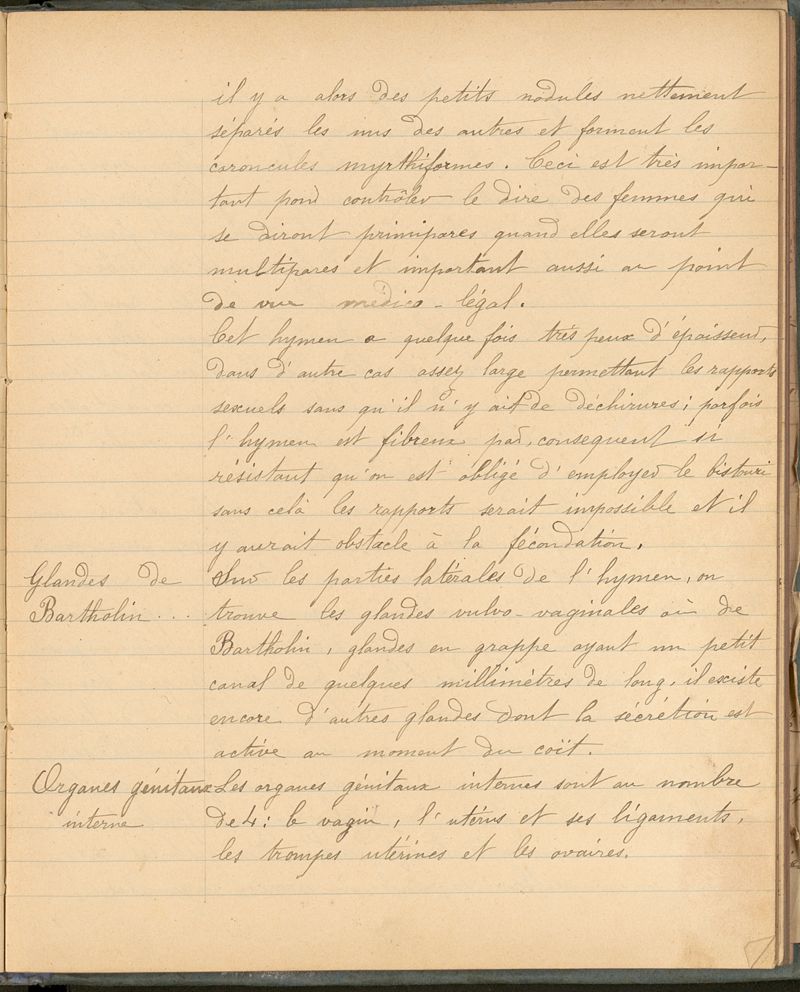 il y a alors des petits nodules nettement
séparés les uns des autres et forment les
caroncules myrthiformes. Ceci est très impor-
tant pour contrôler le dire des femmes qui
se diront primipares quand elles seront
multipares et important aussi au point
de vue médico-légal.
Cet hymen a quelque fois très peux d'épaisseur,
dans d'autre cas assez large permettant les rapports
sexuels sans qu'il n'y ait de déchirures; parfois
l'hymen est fibreux par consequent si
résistant qu'on est obligé d'employer le bistouri
sans celà les rapports serait impossible et il
y aurait obstacle à la fécondation.
Glandes de
Bartholin...
Sur les parties latérales de l'hymen, on
trouve les glandes vulvo-vaginales où de
Bartholin, glandes en grappe ayant un petit
canal de quelques millimètres de long, il existe
encore d'autres glandes dont la sécrétion est
active au moment du coït.
Organes génitaux
interne
Les organes génitaux internes sont au nombre
de 4: le vagin, l'utérus et ses ligaments,
les trompes utérines et les ovaires.
7